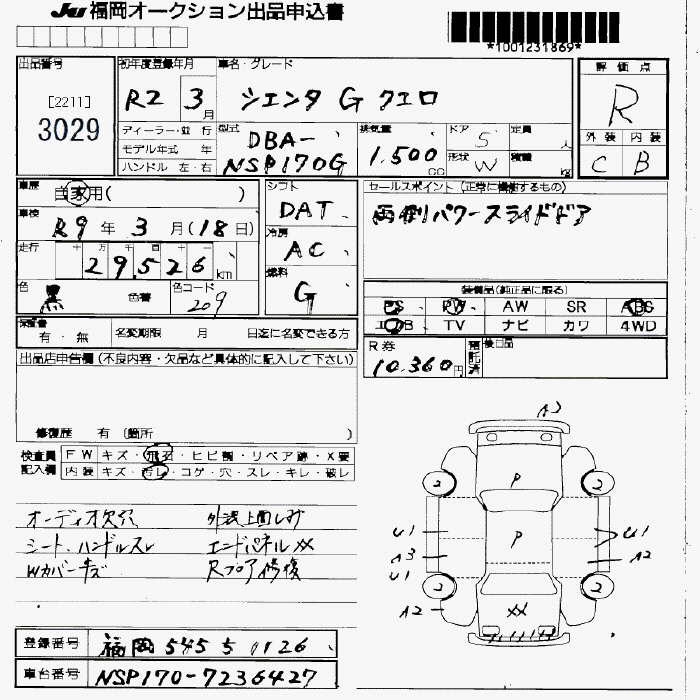 JU 福岡オークション出品申込書
*1001231869*
出品番号 初年度登録年月 車名・グレード 評価点
[2211]
3029
R2 3月 シエンタ G クエロ R
ディーラー・並行 型式 DBA- 排気量 ドア 5 定員 人 外装 内装
モデル年式 年 1,500 CC
ハンドル 左・右 NSP170G 形状 W 積量 kg C B
車歴 自家用( ) シフト DAT セールスポイント(正常に機能するもの)
車検 R9年 3月(18日) 両側パワースライドドア
走行 十 万 千 百 十 一 冷房 AC
29526 km
燃料 G
色 黒 色番 色コード 209 装備品(純正品に限る)
PS PW AW SR ABS
エアB TV ナビ カワ 4WD
保証書 有・無 名変期限 月 日迄に名変できる方
R券 10,360円 預託済 後日品
出品店申告欄(不良内容・欠品など具体的に記入して下さい)
修復歴 有 (箇所 )
検査員 FWキズ・飛石・ヒビ割・リペア跡・X要
記入欄 内装キズ・汚レ・コゲ・穴・スレ・キレ・破レ
オーディオ欠品 外装上面しみ
シート、ハンドルスレ エンドパネルXX
Wカバーキズ Rフロア修復
A2
2 P 2
U1 P U1
A3 A2
U1
2 2
A2 XX
登録番号 福岡 545 ら 0126
車台番号 NSP170-7236427